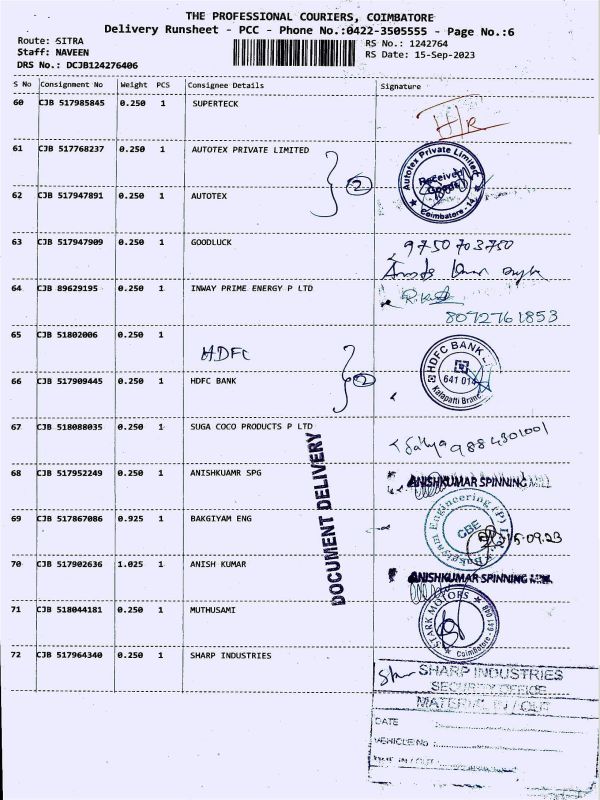 THE PROFESSIONAL COURIERS, COIMBATORE
Delivery Runsheet - PCC - Phone No.:0422-3505555 - Page No.:6
Route: SITRA
RS No.: 1242764
Staff: NAVEEN
RS Date: 15-Sep-2023
DRS No.: DCJB124276406
S No Consignment No Weight PCS Consignee Details Signature
60 CJB 517985845 0.250 1 SUPERTECK
61 CJB 517768237 0.250 1 AUTOTEX PRIVATE LIMITED
Autotex Private Limited
Received
Goods
Coimbatore - 14
2
62 CJB 517947891 0.250 1 AUTOTEX
63 CJB 517947909 0.250 1 GOODLUCK
9750703750
64 CJB 89629195 0.250 1 INWAY PRIME ENERGY P LTD
8072761853
65 CJB 51802006 0.250 1
HDFC
HDFC BANK
641 014
Kalapatti Branch
2
66 CJB 517909445 0.250 1 HDFC BANK
67 CJB 518088035 0.250 1 SUGA COCO PRODUCTS P LTD
9884301001
DOCUMENT DELIVERY
68 CJB 517952249 0.250 1 ANISHKUAMR SPG
ANISHKUMAR SPINNING MILL
69 CJB 517867086 0.925 1 BAKGIYAM ENG
Bakgiyam Engineering (P)
CBE
15.09.23
70 CJB 517902636 1.025 1 ANISH KUMAR
ANISHKUMAR SPINNING MILL
71 CJB 518044181 0.250 1 MUTHUSAMI
STARK MOTORS
Coimbatore - 641 048
72 CJB 517964340 0.250 1 SHARP INDUSTRIES
SHARP INDUSTRIES
SECURITY OFFICE
MATERIAL IN / OUT
DATE :
VEHICLE No :
IN / OUT :